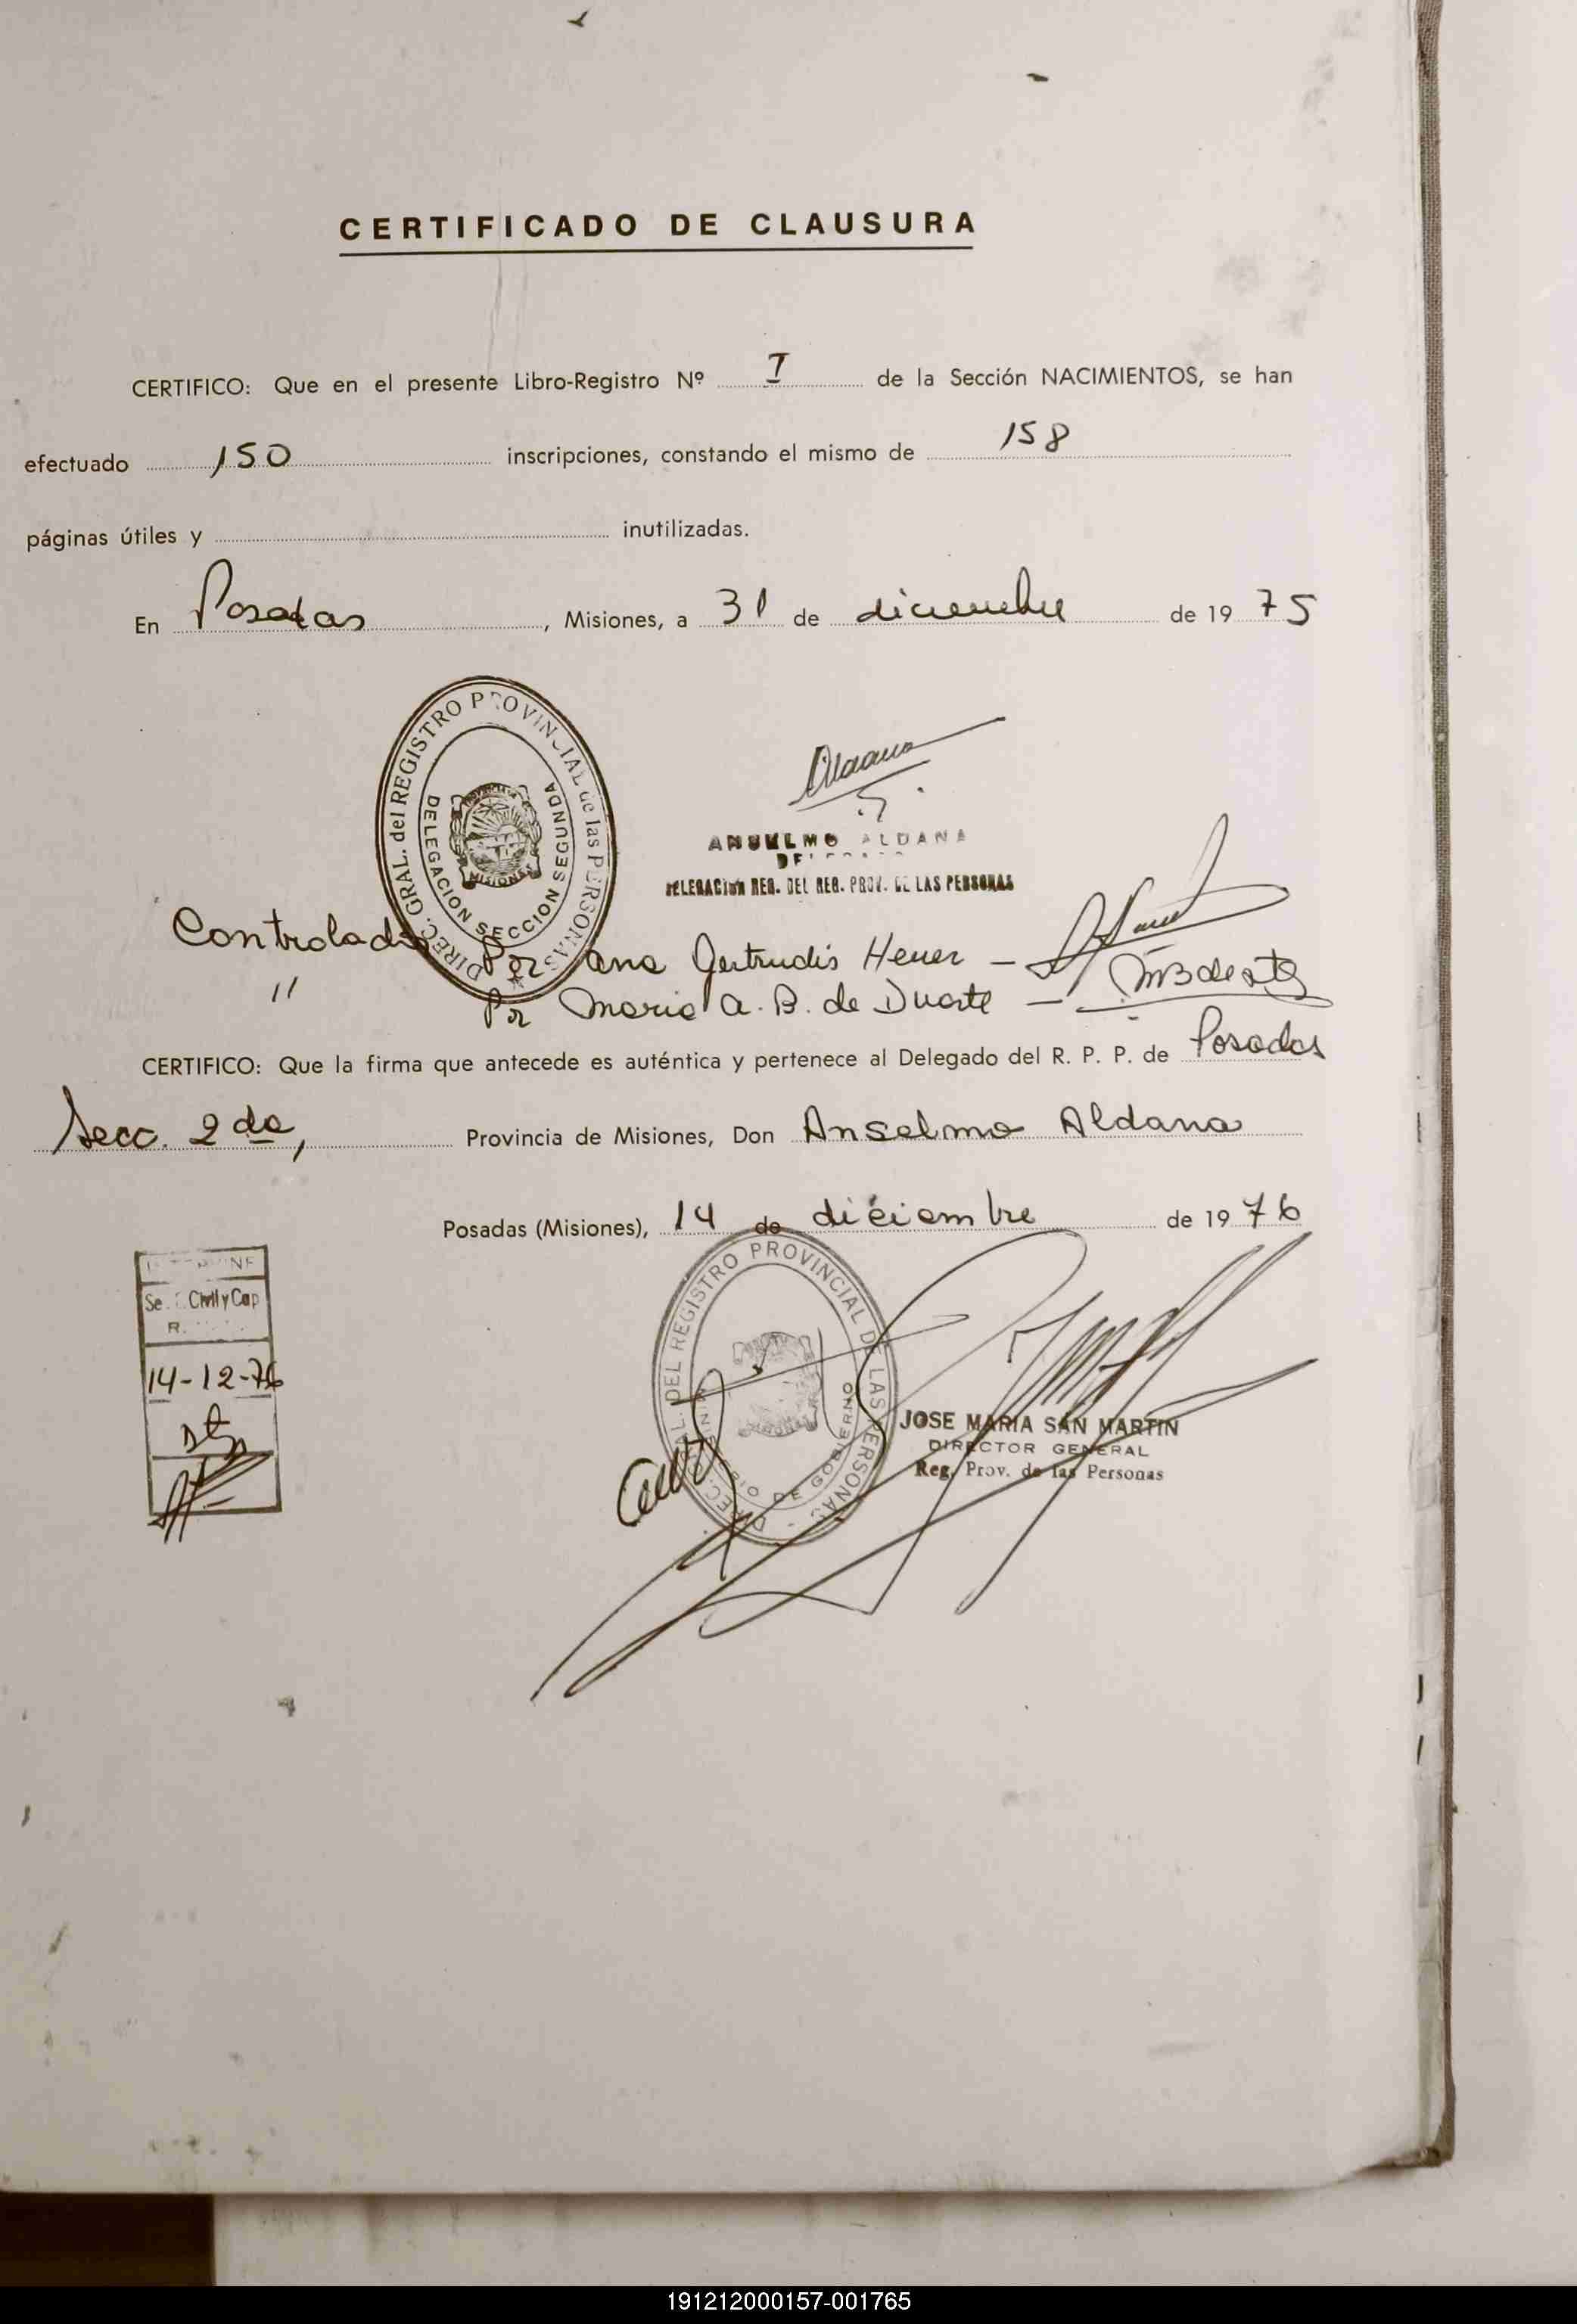 CERTIFICADO DE CLAUSURA
CERTIFICO: Que en el presente Libro-Registro Nº I de la Sección NACIMIENTOS, se han
efectuado 150 inscripciones, constando el mismo de 158
páginas útiles y inutilizadas.
En Posadas, Misiones, a 31 de diciembre de 1975
DIREC. GRAL. del REGISTRO PROVINCIAL de las PERSONAS
DELEGACION SECCION SEGUNDA
PROVINCIA DE MISIONES
Aldana
ANSELMO ALDANA
DELEGACION REG. DEL REG. PROV. DE LAS PERSONAS
Controlado Por Ana Gertrudis Heuer -
" Por Maria A. B. de Duarte -
CERTIFICO: Que la firma que antecede es auténtica y pertenece al Delegado del R. P. P. de Posadas
Secc. 2da, Provincia de Misiones, Don Anselmo Aldana
Posadas (Misiones), 14 de diciembre de 1976
Civil y Cap
14-12-76
DIREC. GRAL. DEL REGISTRO PROVINCIAL DE LAS PERSONAS
MINISTERIO DE GOBIERNO
JOSE MARIA SAN MARTIN
DIRECTOR GENERAL
Reg. Prov. de las Personas
191212000157-001765